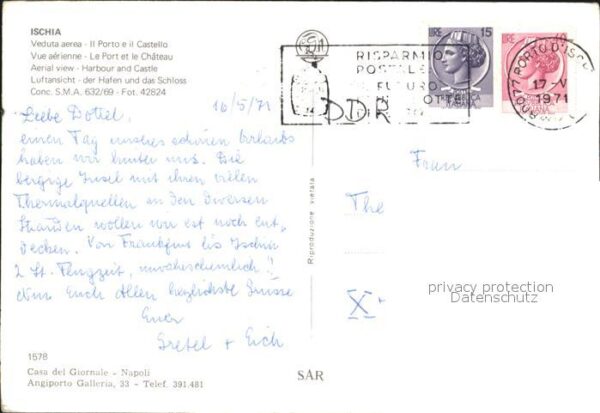 ISCHIA
Veduta aerea - Il Porto e il Castello
Vue aérienne - Le Port et le Château
Aerial view - Harbour and Castle
Luftansicht - der Hafen und das Schloss
Conc. S.M.A. 632/69 - Fot. 42824
LIRE 15
LIRE
RISPARMIO
POSTALE
FUTURO
PORTO D'ISCH
17-V
1971
DDR
16/5/71
Liebe
einen Tag unseres schönen Urlaubs
haben wir hinter uns. Die
bergige Insel mit ihren vielen
Thermalquellen an den diversen
Stränden wollen wir erst noch ent-
decken. Von Frankfurt bis Ischia
2 St. Flugzeit, unwahrscheinlich!!
Euch Allen herzlichste Grüsse
Euer
Gretel + Erich
Frau
The
X
Riproduzione vietata
privacy protection
Datenschutz
1578
Casa del Giornale - Napoli
Angiporto Galleria, 33 - Telef. 391.481
SAR